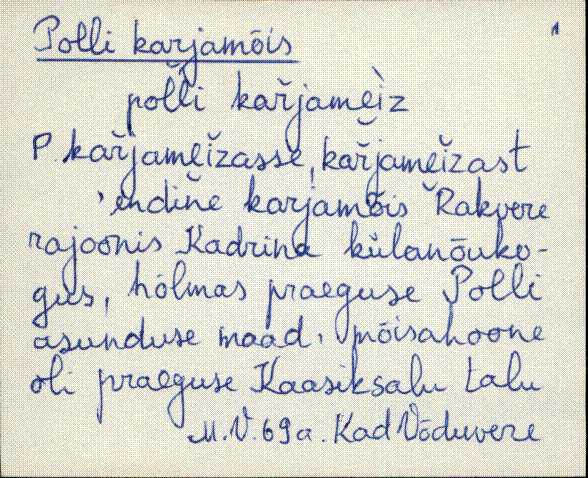 1
Polli karjamõis
pol̆l̆i kar̆jameì̬z
P. kar̆jamei̬z̆asse, kar̆jamei̬z̆ast
'endine karjamõis Rakvere
rajoonis Kadrina külanõuko-
gus, hõlmas praeguse Polli
asunduse maad, mõisahoone
oli praeguse Kaasiksalu talu
M.V. 69 a. Kad Võduvere